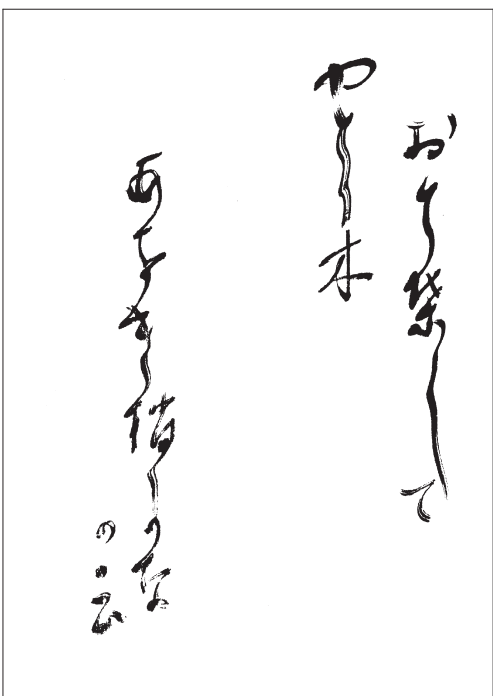 おち葉して
やとり木
あをき梢かな